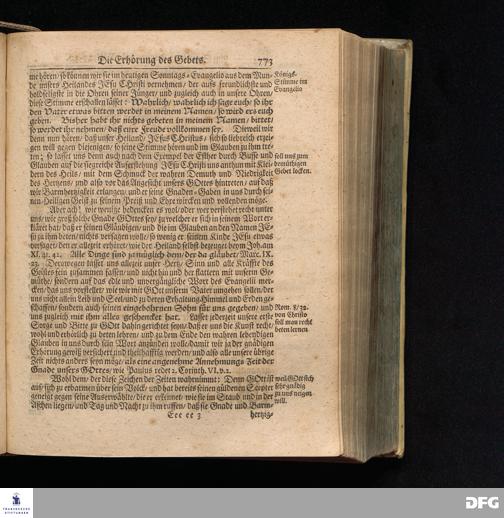 Die Erhörung des Gebets. 773
me hören / so können wir sie im heutigen Sonntags-Evangelio aus dem Mun-
de unsers Heilandes JEsu Christi vernehmen / der aufs freundlichste und
holdseligste in die Ohren seiner Jünger / und zugleich auch in unsere Ohren /
diese Stimme erschallen lässet: Wahrlich / wahrlich ich sage euch / so ihr
den Vater etwas bitten werdet in meinem Namen / so wird ers euch
geben. Bisher habt ihr nichts gebeten in meinem Namen / bittet /
so werdet ihr nehmen / daß eure Freude vollkommen sey. Dieweil wir
denn nun hören / daß unser Heiland JEsus Christus / sich so liebreich erzei-
gen will gegen diejenigen / so seine Stimme hören und im Glauben zu ihm tre-
ten; so lasset uns denn auch nach dem Exempel der Esther durch Busse und
Glauben auf die siegreiche Auferstehung JEsu Christi uns anthun mit Klei-
dern des Heils / mit dem Schmuck der wahren Demuth und Niedrigkeit
des Hertzens / und also vor das Angesicht unsers GOttes hintreten / auf daß
wir Barmhertzigkeit erlangen / und er seine Gnaden-Gaben in uns durch sei-
nen Heiligen Geist zu seinem Preiß und Ehre wircken und vollenden möge.
Aber ach! wie wenige bedencken es wol / oder wer verstehet recht unter
uns / wie groß solche Gnade GOttes sey / zu welcher er sich in seinem Wort er-
kläret hat / daß er seinen Gläubigen / und die im Glauben an den Namen JE-
su zu ihm beten / nichts versagen wolle / so wenig er seinem Kinde JEsu etwas
versaget / den er allezeit erhöret / wie der Heiland selbst bezeuget beym Joh. am
XI. 41. 42. Alle Dinge sind ja möglich dem / der da gläubet / Marc. IX.
23. Derowegen müsset uns allezeit unser Hertz / Sinn und alle Kräffte des
Geistes sein zusammen fassen / und nicht hin und her flattern mit unserm Ge-
müthe / sondern auf das edle und unvergängliche Wort des Evangelii mer-
cken / das uns vorstellet / wie wir mit GOtt unserm Vater umgehen sollen / der
uns nicht allein Leib und Seel / und zu deren Erhaltung Himmel und Erden ge-
schaffen / sondern auch seinen eingebohrnen Sohn für uns gegeben / und
uns zugleich mit ihm alles geschencket hat. Lasset jederzeit unsere erste
Sorge und Bitte zu GOtt dahin gerichtet seyn / daß er uns die Kunst recht /
wohl und erhörlich zu beten lehren / und zu dem Ende den wahren lebendigen
Glauben in uns durch sein Wort anzünden wolle / damit wir ja der gnädigen
Erhörung gewiß versichert und theilhafftig werden / und also alle unsere übrige
Zeit nichts anders seyn möge / als eine angenehme Annehmungs-Zeit der
Gnade unsers GOttes / wie Paulus redet 2. Corinth. VI. v. 2.
Wohl dem / der diese Zeichen der Zeiten wahrnimmt: Denn GOtt ist
auf / sich zu erbarmen über sein Volck / und hat bereits seinen güldenen Scepter
geneigt gegen seine Auserwählte / die er erkennet / wie sie im Staub und in der
Aschen liegen / und Tag und Nacht zu ihm ruffen / daß sie Gnade und Barm-
Eee ee 3 hertzig-
Königs-
Stimme im
Evangelio
soll uns zum
demüthigen
Gebet locken.
Rom. 8/32.
von Christo
soll man recht
beten lernen
weil GOtt sich
sehr gnädig
zu uns neigen
will.
FRANCKESCHE
STIFTUNGEN
DFG